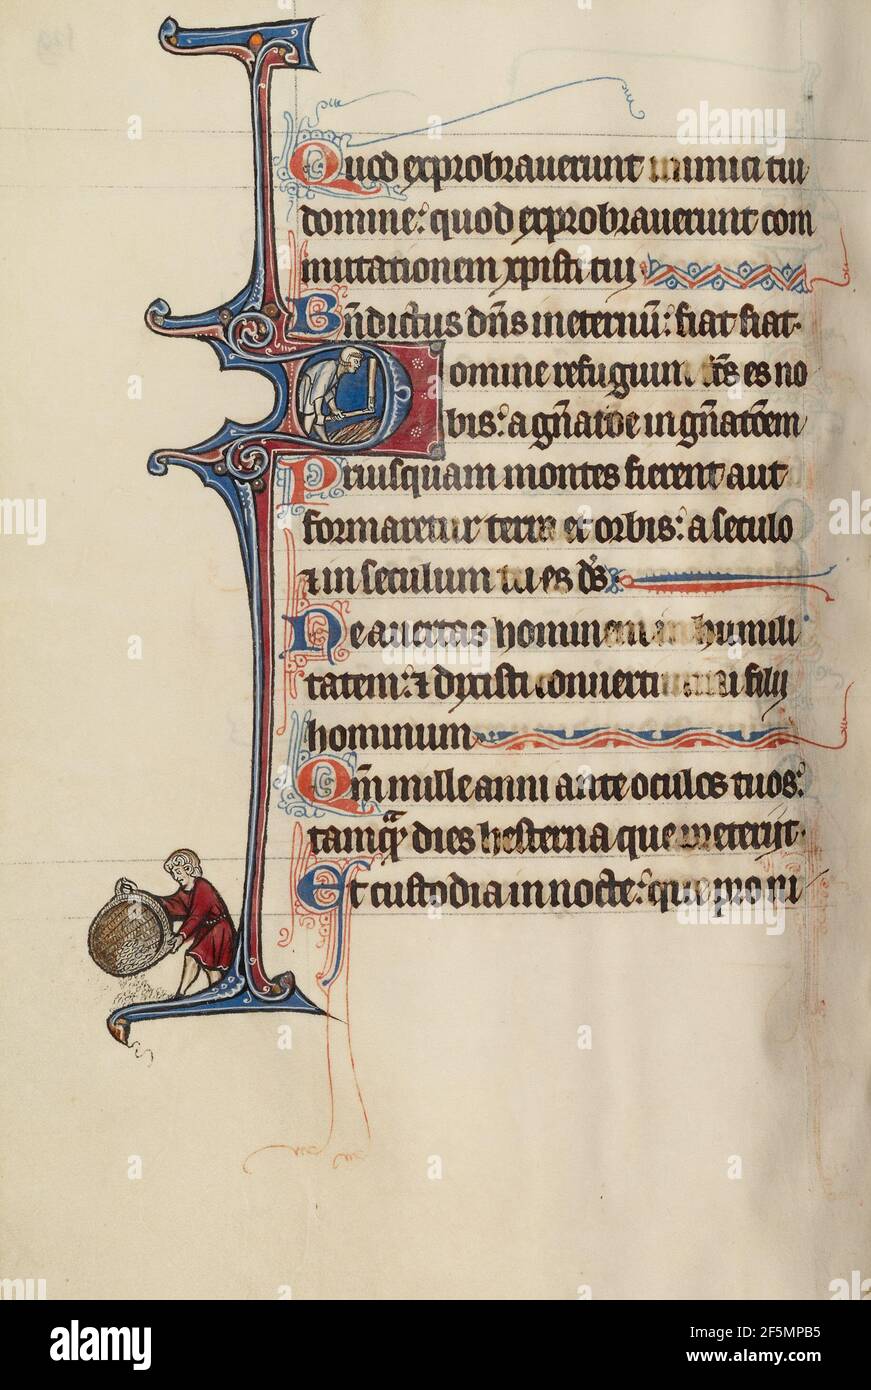 Quod exprobraverunt inimici tui
domine: quod exprobraverunt com
mutationem xpisti tui
Bñdictus dñs in eternū: fiat fiat.
Domine refugium es no
bis: a gñatōe in gñatōem
Priusquam montes fierent aut
formaretur terra et orbis: a seculo
⁊ in seculum tu es ds
Ne avertas hominem in humili
tatem: ⁊ dixisti convertimini filij
hominum
Qm̄ mille anni ante oculos tuos:
tamqᵃ dies hesterna que preterijt.
Et custodia in nocte: que pro ni
alamy
Image ID: 2F5MPB5
www.alamy.com